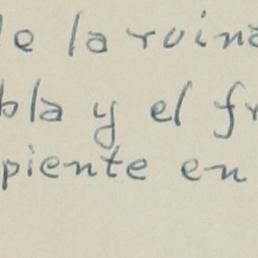 de la ruina
bla y el fr
piente en